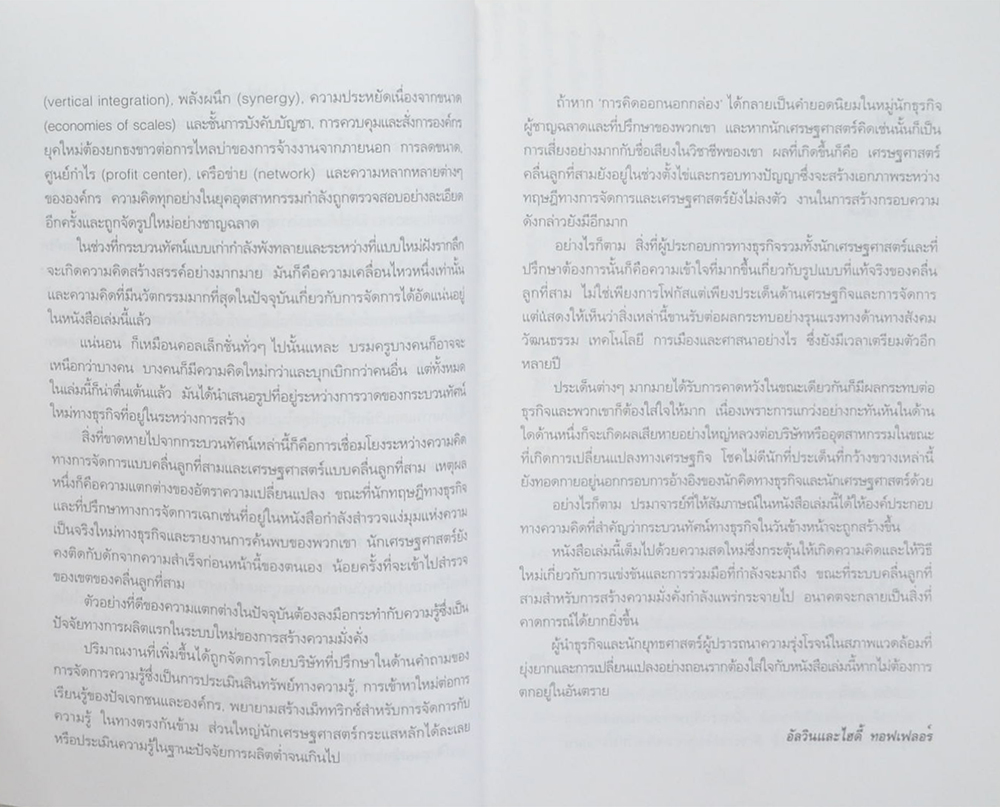 (vertical integration), พลังผนึก (synergy), ความประหยัดเนื่องจากขนาด
(economies of scales) และชั้นการบังคับบัญชา, การควบคุมและสั่งการองค์กร
ยุคใหม่ต้องยกธงขาวต่อการไหลบ่าของการจ้างงานจากภายนอก การลดขนาด,
ศูนย์กำไร (profit center), เครือข่าย (network) และความหลากหลายต่างๆ
ขององค์กร ความคิดทุกอย่างในยุคอุตสาหกรรมกำลังถูกตรวจสอบอย่างละเอียด
อีกครั้งและถูกจัดรูปใหม่อย่างชาญฉลาด
ในช่วงที่กระบวนทัศน์แบบเก่ากำลังพังทลายและระหว่างที่แบบใหม่ฝังรากลึก
จะเกิดความคิดสร้างสรรค์อย่างมากมาย มันก็คือความเคลื่อนไหวหนึ่งเท่านั้น
และความคิดที่มีนวัตกรรมมากที่สุดในปัจจุบันเกี่ยวกับการจัดการได้อัดแน่นอยู่
ในหนังสือเล่มนี้แล้ว
แน่นอน ก็เหมือนคอลเล็กชั่นทั่วๆ ไปนั้นแหละ บรมครูบางคนก็อาจจะ
เหนือกว่าบางคน บางคนก็มีความคิดใหม่กว่าและบุกเบิกกว่าคนอื่น แต่ทั้งหมด
ในเล่มนี้ก็น่าตื่นเต้นแล้ว มันได้นำเสนอรูปที่อยู่ระหว่างการวาดของกระบวนทัศน์
ใหม่ทางธุรกิจที่อยู่ในระหว่างการสร้าง
สิ่งที่ขาดหายไปจากกระบวนทัศน์เหล่านี้ก็คือการเชื่อมโยงระหว่างความคิด
ทางการจัดการแบบคลื่นลูกที่สามและเศรษฐศาสตร์แบบคลื่นลูกที่สาม เหตุผล
หนึ่งก็คือความแตกต่างของอัตราความเปลี่ยนแปลง ขณะที่นักทฤษฎีทางธุรกิจ
และที่ปรึกษาทางการจัดการเฉกเช่นที่อยู่ในหนังสือกำลังสำรวจแง่มุมแห่งความ
เป็นจริงใหม่ทางธุรกิจและรายงานการค้นพบของพวกเขา นักเศรษฐศาสตร์ยัง
คงติดกับดักจากความสำเร็จก่อนหน้านี้ของตนเอง น้อยครั้งที่จะเข้าไปสำรวจ
ของเขตของคลื่นลูกที่สาม
ตัวอย่างที่ดีของความแตกต่างในปัจจุบันต้องลงมือกระทำกับความรู้ซึ่งเป็น
ปัจจัยทางการผลิตแรกในระบบใหม่ของการสร้างความมั่งคั่ง
ปริมาณงานที่เพิ่มขึ้นได้ถูกจัดการโดยบริษัทที่ปรึกษาในด้านคำถามของ
การจัดการความรู้ซึ่งเป็นการประเมินสินทรัพย์ทางความรู้, การเข้าหาใหม่ต่อการ
เรียนรู้ของปัจเจกชนและองค์กร, พยายามสร้างเม็ททริกซ์สำหรับการจัดการกับ
ความรู้ ในทางตรงกันข้าม ส่วนใหญ่นักเศรษฐศาสตร์กระแสหลักได้ละเลย
หรือประเมินความรู้ในฐานะปัจจัยการผลิตต่ำจนเกินไป
ถ้าหาก 'การคิดออกนอกกล่อง' ได้กลายเป็นคำยอดนิยมในหมู่นักธุรกิจ
ผู้ชาญฉลาดและที่ปรึกษาของพวกเขา และหากนักเศรษฐศาสตร์คิดเช่นนั้นก็เป็น
การเสี่ยงอย่างมากกับชื่อเสียงในวิชาชีพของเขา ผลที่เกิดขึ้นก็คือ เศรษฐศาสตร์
คลื่นลูกที่สามยังอยู่ในช่วงตั้งไข่และกรอบทางปัญญาซึ่งจะสร้างเอกภาพระหว่าง
ทฤษฎีทางการจัดการและเศรษฐศาสตร์ยังไม่ลงตัว งานในการสร้างกรอบความ
ดังกล่าวยังมีอีกมาก
อย่างไรก็ตาม สิ่งที่ผู้ประกอบการทางธุรกิจรวมทั้งนักเศรษฐศาสตร์และที่
ปรึกษาต้องการนั้นก็คือความเข้าใจที่มากขึ้นเกี่ยวกับรูปแบบที่แท้จริงของคลื่น
ลูกที่สาม ไม่ใช่เพียงการโฟกัสแต่เพียงประเด็นด้านเศรษฐกิจและการจัดการ
แต่แสดงให้เห็นว่าสิ่งเหล่านี้ขานรับต่อผลกระทบอย่างรุนแรงทางด้านทางสังคม
วัฒนธรรม เทคโนโลยี การเมืองและศาสนาอย่างไร ซึ่งยังมีเวลาเตรียมตัวอีก
หลายปี
ประเด็นต่างๆ มากมายได้รับการคาดหวังในขณะเดียวกันก็มีผลกระทบต่อ
ธุรกิจและพวกเขาก็ต้องใส่ใจให้มาก เนื่องเพราะการแกว่งอย่างกะทันหันในด้าน
ใดด้านหนึ่งก็จะเกิดผลเสียหายอย่างใหญ่หลวงต่อบริษัทหรืออุตสาหกรรมในขณะ
ที่เกิดการเปลี่ยนแปลงทางเศรษฐกิจ โชคไม่ดีนักที่ประเด็นที่กว้างขวางเหล่านี้
ยังทอดกายอยู่นอกกรอบการอ้างอิงของนักคิดทางธุรกิจและนักเศรษฐศาสตร์ด้วย
อย่างไรก็ตาม ปรมาจารย์ที่ให้สัมภาษณ์ในหนังสือเล่มนี้ได้ให้องค์ประกอบ
ทางความคิดที่สำคัญว่ากระบวนทัศน์ทางธุรกิจในวันข้างหน้าจะถูกสร้างขึ้น
หนังสือเล่มนี้เต็มไปด้วยความสดใหม่ซึ่งกระตุ้นให้เกิดความคิดและให้วิธี
ใหม่เกี่ยวกับการแข่งขันและการร่วมมือที่กำลังจะมาถึง ขณะที่ระบบคลื่นลูกที่
สามสำหรับการสร้างความมั่งคั่งกำลังแพร่กระจายไป อนาคตจะกลายเป็นสิ่งที่
คาดการณ์ได้ยากยิ่งขึ้น
ผู้นำธุรกิจและนักยุทธศาสตร์ผู้ปรารถนาความรุ่งโรจน์ในสภาพแวดล้อมที่
ยุ่งยากและการเปลี่ยนแปลงอย่างถอนรากต้องใส่ใจกับหนังสือเล่มนี้หากไม่ต้องการ
ตกอยู่ในอันตราย
อัลวินและไฮดี้ ทอฟเฟลอร์